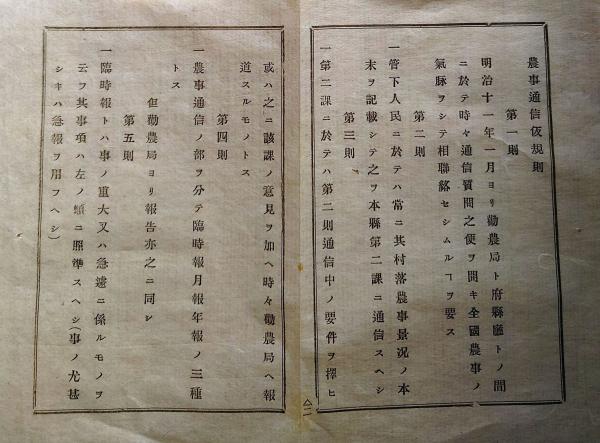 農事通信仮規則
第一則
明治十一年一月ヨリ勸農局ト府縣廳トノ間
ニ於テ時々通信質問之便ヲ開キ全國農事ノ
氣脉ヲシテ相聯絡セシムルヿヲ要ス
第二則
一管下人民ニ於テハ常ニ其村落農事景況ノ本
末ヲ記載シテ之ヲ本縣第二課ニ通信スヘシ
第三則
一第二課ニ於テハ第二則通信中ノ要件ヲ擇ヒ
或ハ之ニ該課ノ意見ヲ加ヘ時々勸農局ヘ報
道スルモノトス
第四則
一農事通信ノ部ヲ分テ臨時報月報年報ノ三種
トス
但勸農局ヨリ報告亦之ニ同シ
第五則
一臨時報トハ事ノ重大又ハ急遽ニ係ルモノヲ
云フ其事項ハ左ノ類ニ照準スヘシ(事ノ尤甚
シキハ急報ヲ用フヘシ)